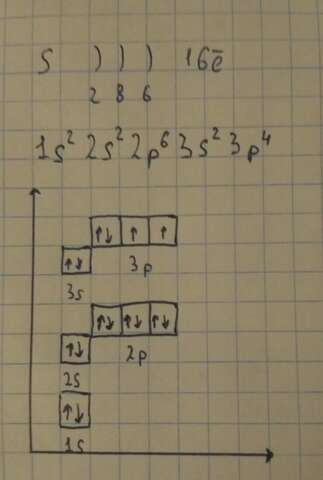 S ) ) ) 16ē
2 8 6
1s² 2s² 2p⁶ 3s² 3p⁴
↑↓ ↑ ↑
↑↓ 3p
3s
↑↓ ↑↓ ↑↓
↑↓ 2p
2s
↑↓
1s